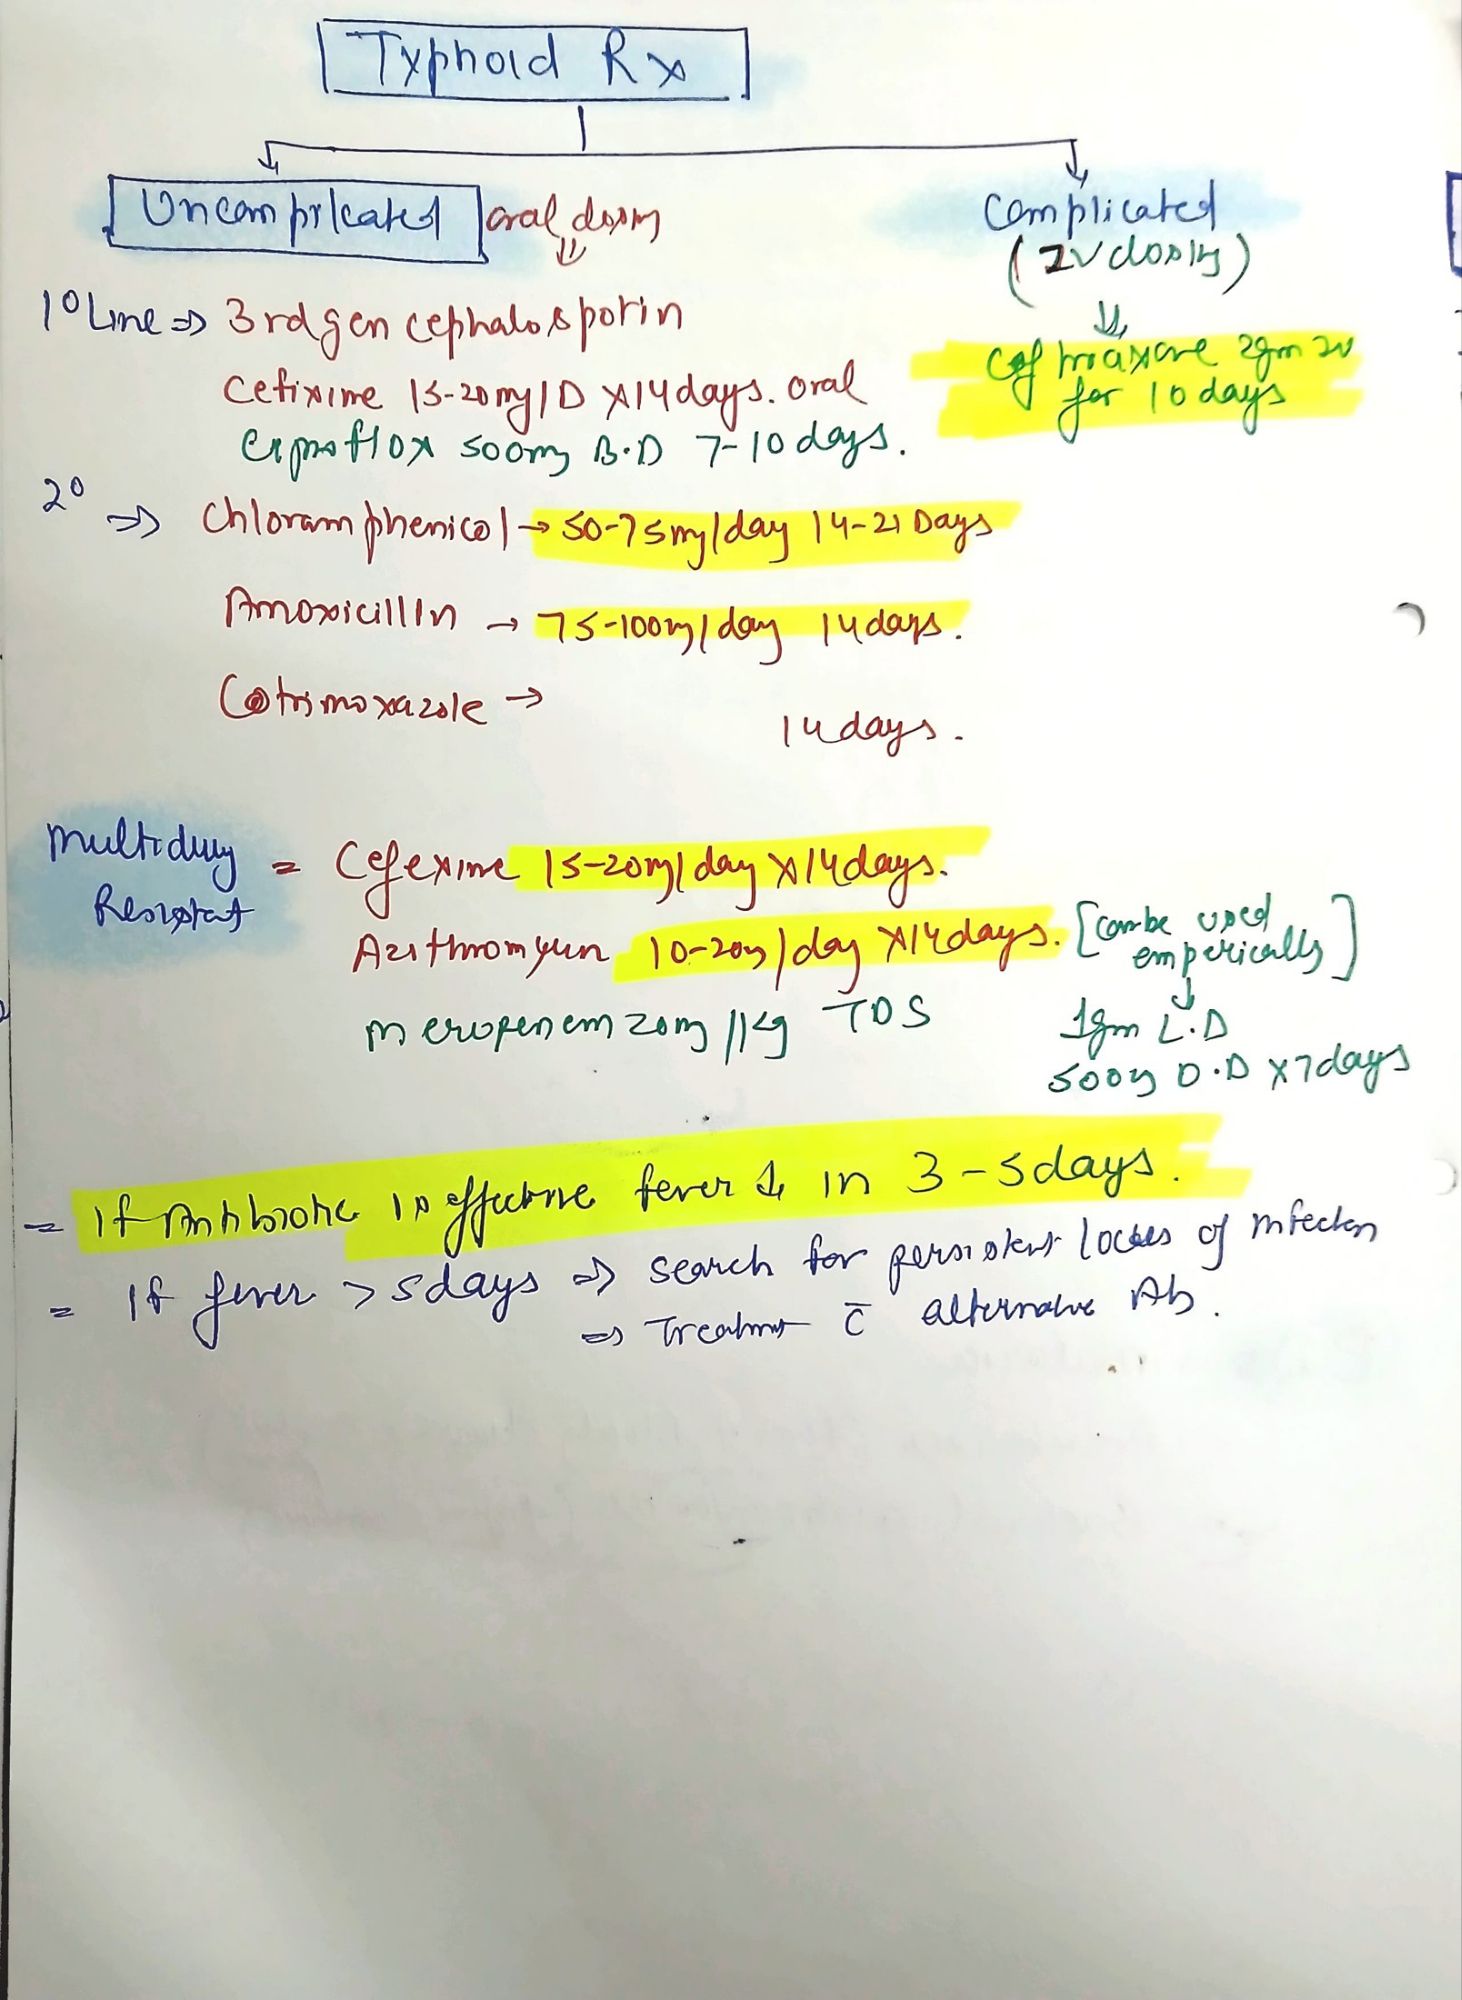 Typhoid Rx
Uncomplicated oral dosing
Complicated
(IV dosing)
1° Line ⇒ 3rd gen cephalosporin
Cefixime 15-20mg/D x14days. oral
Ciproflox 500mg B.D 7-10 days.
Ceftriaxone 2gm IV
for 10 days
2° ⇒ Chloramphenicol → 50-75mg/day 14-21 Days
Amoxicillin → 75-100mg/day 14days.
Cotrimoxazole →
14days.
Multidrug
Resistant
= Cefexime 15-20mg/day x14days.
Azithromycin 10-20mg/day x14days. [can be used
emperically]
Meropenem 20mg/kg TDS
1gm L.D
500mg O.D x7days
= If Antibiotic is effective fever ↓ in 3-5days.
= If fever >5days ⇒ search for persistent locus of infection
⇒ Treatment c̄ alternative Ab.